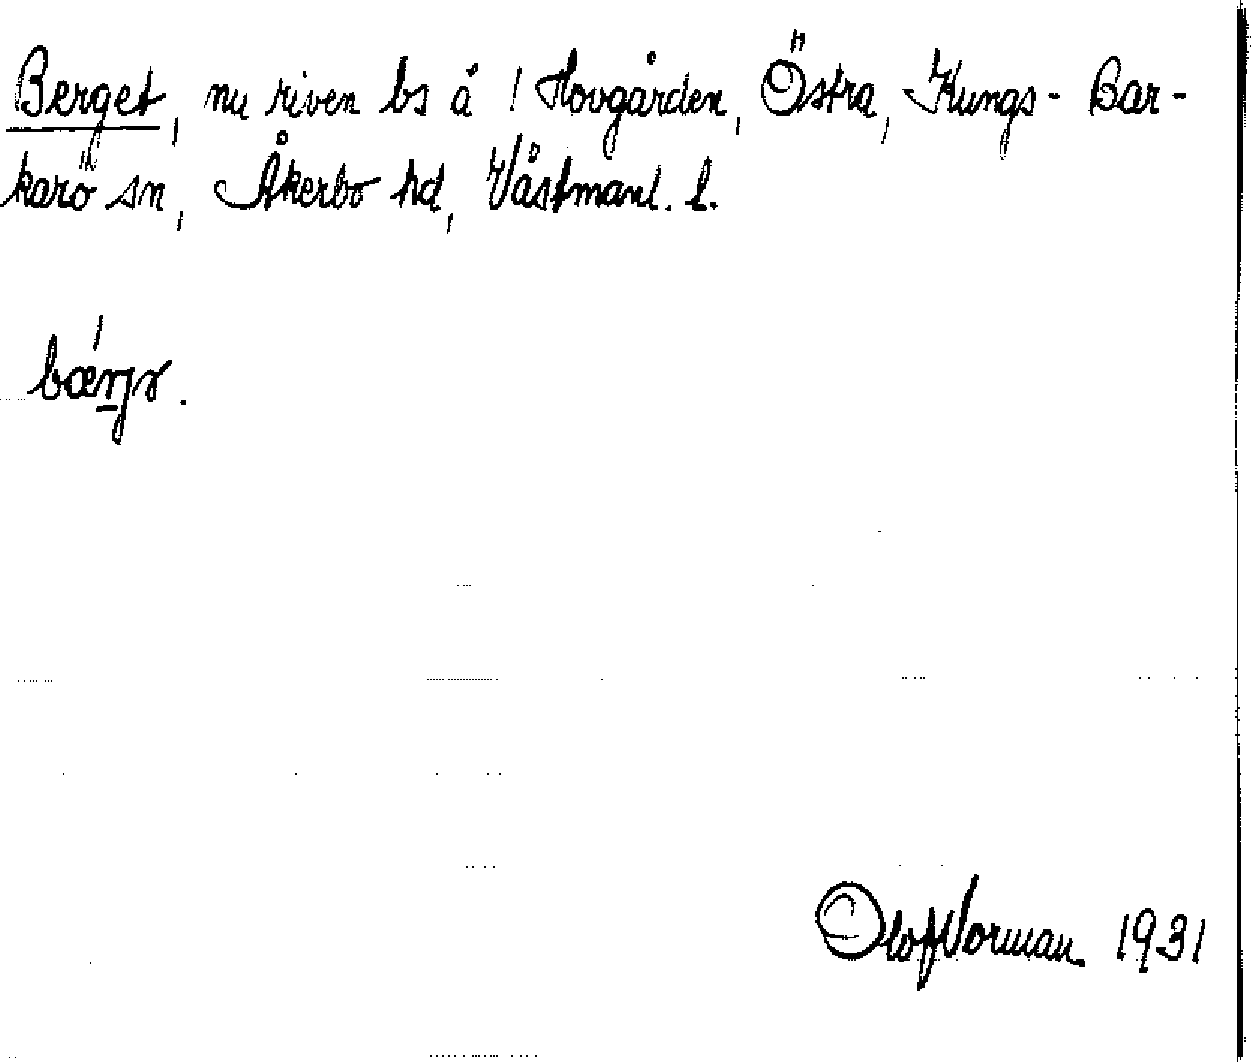 Berget, nu riven bs å ! Hovgården, Östra, Kungs-Bar-
karö sn, Åkerbo hd, Västmanl. l.
Olof Norman 1931